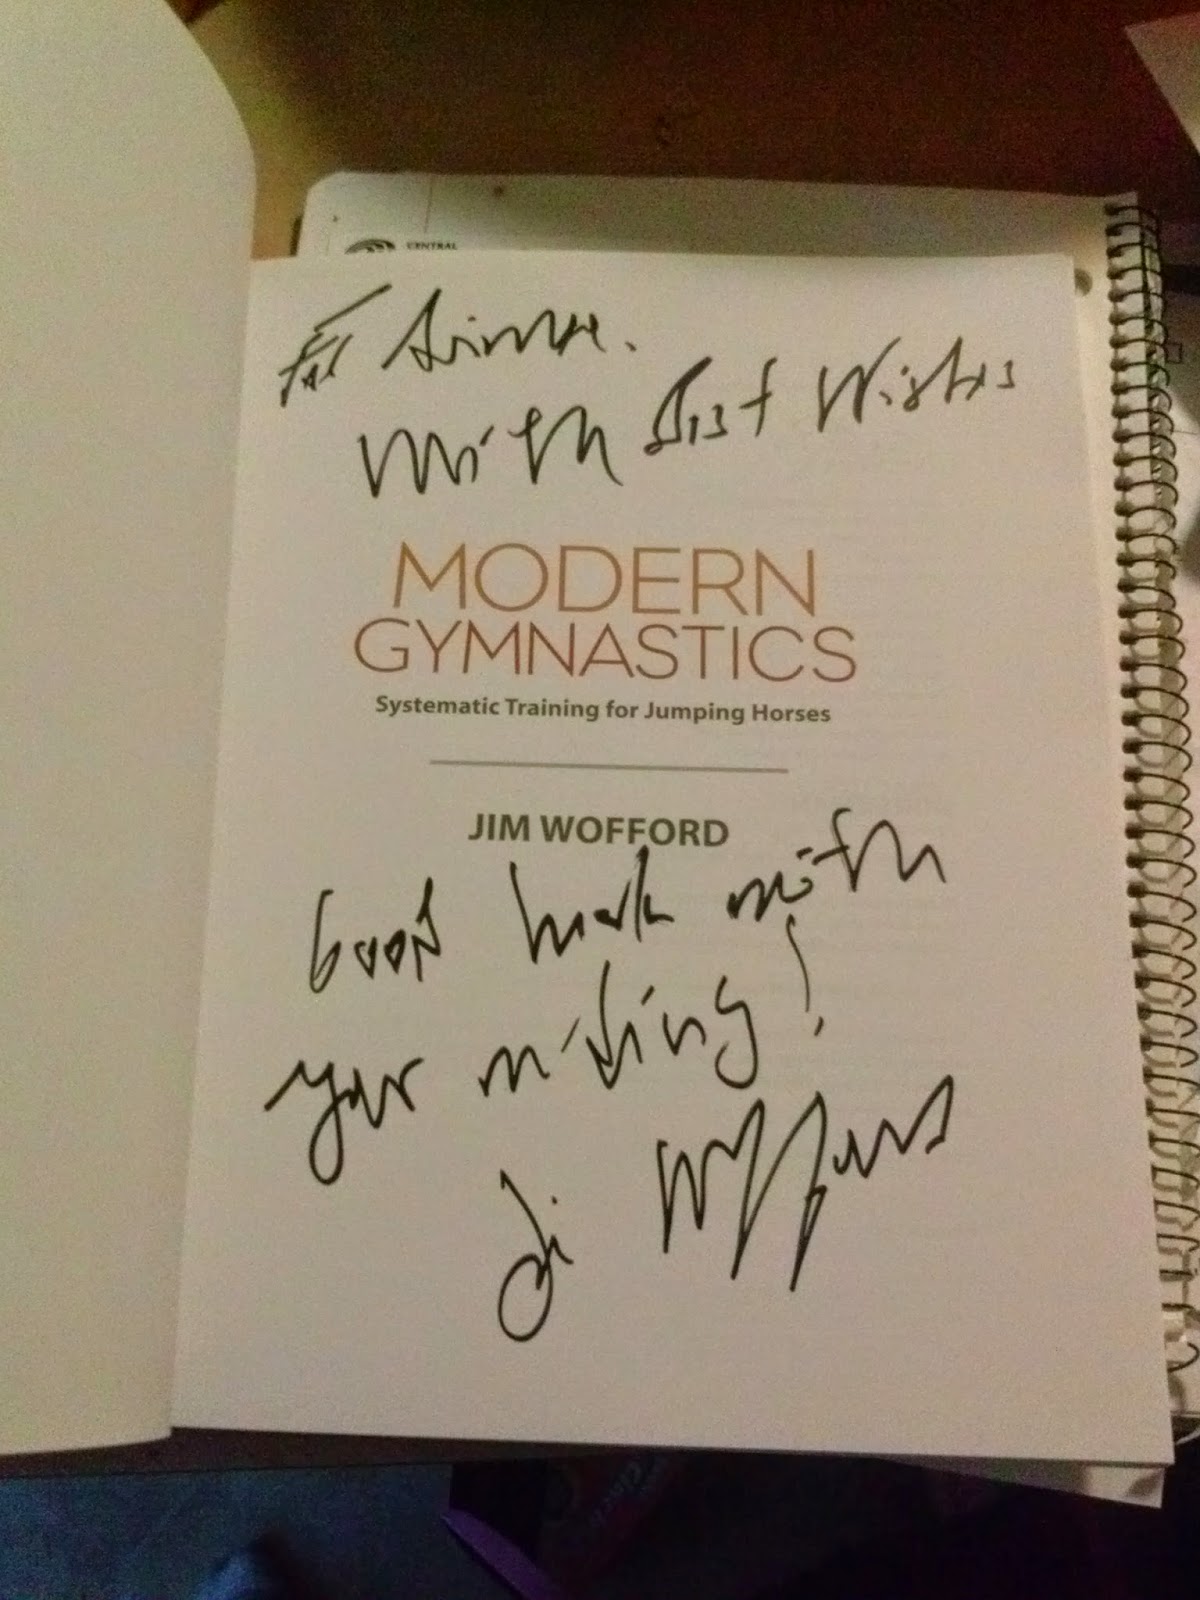 CENTRAL
For
With Best Wishes
MODERN
GYMNASTICS
Systematic Training for Jumping Horses
JIM WOFFORD
Good luck with
your riding!
Jim Wofford